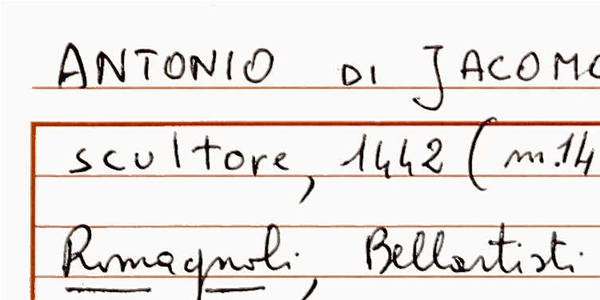 ANTONIO DI JACOMO
scultore, 1442 (m.14
Romagnoli, Bellartisti